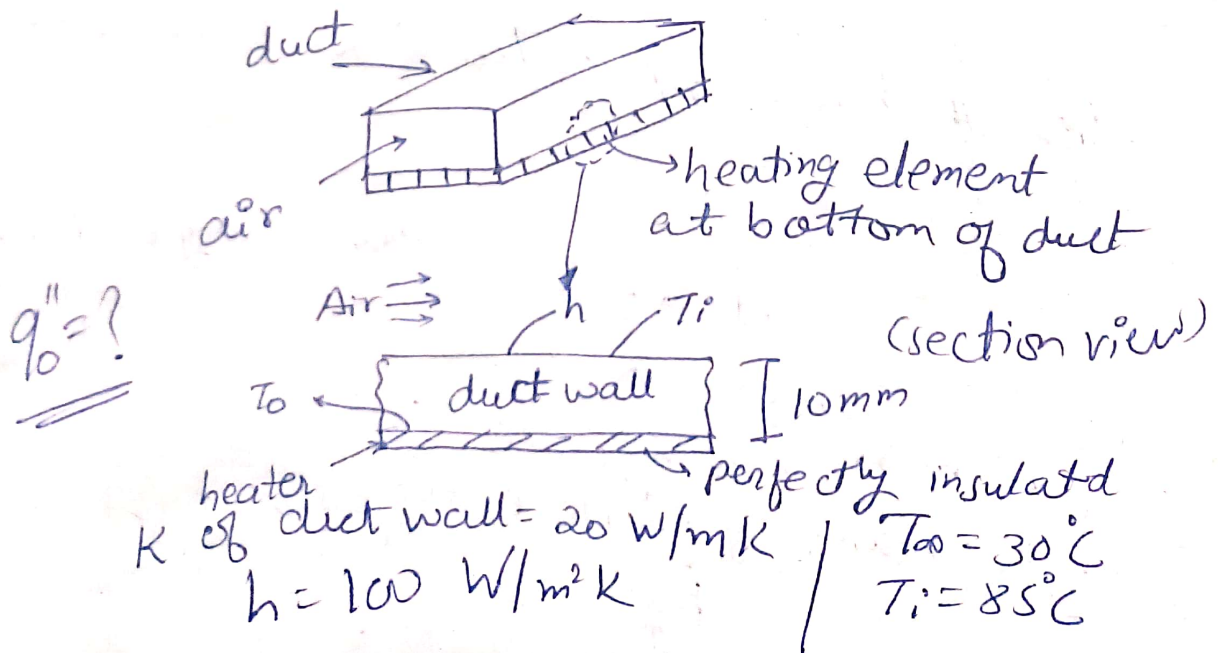 duct
air
heating element
at bottom of duct
q₀"=?
Air
h
Ti
(section view)
To
duct wall
10mm
heater
perfectly insulatd
K of duct wall = 20 W/mK
h = 100 W/m²K
T∞ = 30°C
Ti = 85°C